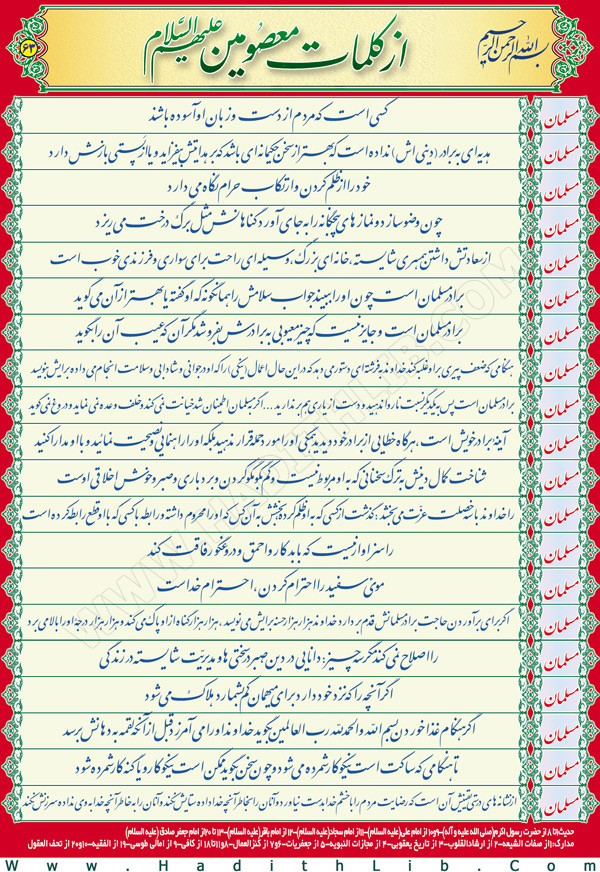 بسم الله الرحمن الرحیم
از کلمات معصومین علیهم السلام
۶۳
مسلمان کسی است که مردم از دست و زبان او آسوده باشند
مسلمان هدیه ای به برادر (دینی اش) نداده است که بهتر از سخن حکیمانه ای باشد که بر هدایتش بیفزاید و یا از پستی بازش دارد
مسلمان خود را از ظلم کردن و ارتکاب حرام نگاه می دارد
مسلمان چون وضو سازد و نمازهای پنجگانه را به جای آورد گناهانش مثل برگ درخت می ریزد
مسلمان از سعادتش داشتن همسری شایسته، خانه ای بزرگ، وسیله ای راحت برای سواری و فرزندی خوب است
مسلمان برادر مسلمان است چون او را ببیند جواب سلامش را همانگونه که او گفته یا بهتر از آن می گوید
مسلمان برادر مسلمان است و جایز نیست که چیز معیوبی به برادرش بفروشد مگر آن که عیب آن را بگوید
مسلمان هنگامی که ضعف پیری بر او غلبه کند خداوند به فرشته ای دستور می دهد که در این حال اعمال (نیکی) را که او در جوانی و شادابی و سلامت انجام می داده برایش بنویسید
مسلمان برادر مسلمان است پس به یکدیگر نسبت ناروا ندهید و دست از یاری هم برندارید ... اگر مسلمان اطمینان شد خیانت نمی کند و خلف وعده نمی نماید و دروغ نمی گوید
مسلمان آینه برادر خویش است، هرگاه خطایی از برادر خود دیدید همگی او را مورد حمله قرار ندهید بلکه او را راهنمایی نصیحت نمائید و با او مدارا کنید
مسلمان شناخت کمال دینش به ترک سخنانی که به او مربوط نیست و کم گفتگو کردن و بردباری و صبر و خوش اخلاقی اوست
مسلمان را خداوند با سه خصلت عزت می بخشد؛ گذشت از کسی که به او ظلم کرده بخشش به آن کس که او را محروم داشته و رابطه با کسی که با او قطع رابطه کرده است
مسلمان را سزاوار نیست که با بدکار و احمق و دروغگو رفاقت کند
مسلمان موی سفید را احترام کردن، احترام خداست
مسلمان اگر برای برآوردن حاجت برادر مسلمانش قدم بردارد خداوند هزار هزار حسنه برایش می نویسد، هزار هزار گناه از او پاک می کند و هزار هزار درجه او را بالا می برد
مسلمان را اصلاح نمی کند مگر سه چیز: دانایی در دین صبر در سختی ها و مدیریت شایسته در زندگی
مسلمان اگر آنچه را که نزد خود دارد برای میهمان کم شمارد هلاک می شود
مسلمان اگر هنگام غذا خوردن بسم الله و الحمدلله رب العالمین بگوید خداوند او را می آمرزد قبل از آنکه لقمه به دهانش برسد
مسلمان تا هنگامی که ساکت است نیکوکار شمرده می شود و چون سخن بگوید ممکن است نیکوکار و یا گنه کار شمرده شود
مسلمان از نشانه های درستی یقینش آن است که رضایت مردم را با خشم خدا به دست نیاورد و آنان را بخاطر آنچه خدا داده ستایش نکند و آنان را به خاطر آنچه خدا به وی نداده سرزنش نکند
حدیث ۱ تا ۸ از حضرت رسول اکرم (صلی الله علیه و آله) - ۹ و ۱۰ از امام علی (علیه السلام) - ۱۱ از امام سجاد (علیه السلام) - ۱۲ از امام باقر (علیه السلام) - ۱۳ تا ۲۰ از امام جعفر صادق (علیه السلام)
مدارک: ۱ از صفات الشیعه - ۲ از ارشادالقلوب - ۳ از تاریخ یعقوبی - ۴ از مجازات النبویه - ۵ از جعفریات - ۶ و ۷ از کنزالعمال - ۸ و ۱۱ تا ۱۸ از کافی - ۹ از امالی طوسی - ۱۹ از الفقیه - ۱۰ و ۲۰ از تحف العقول
www.HadithLib.Com
WWW.HADITHLIB.COM